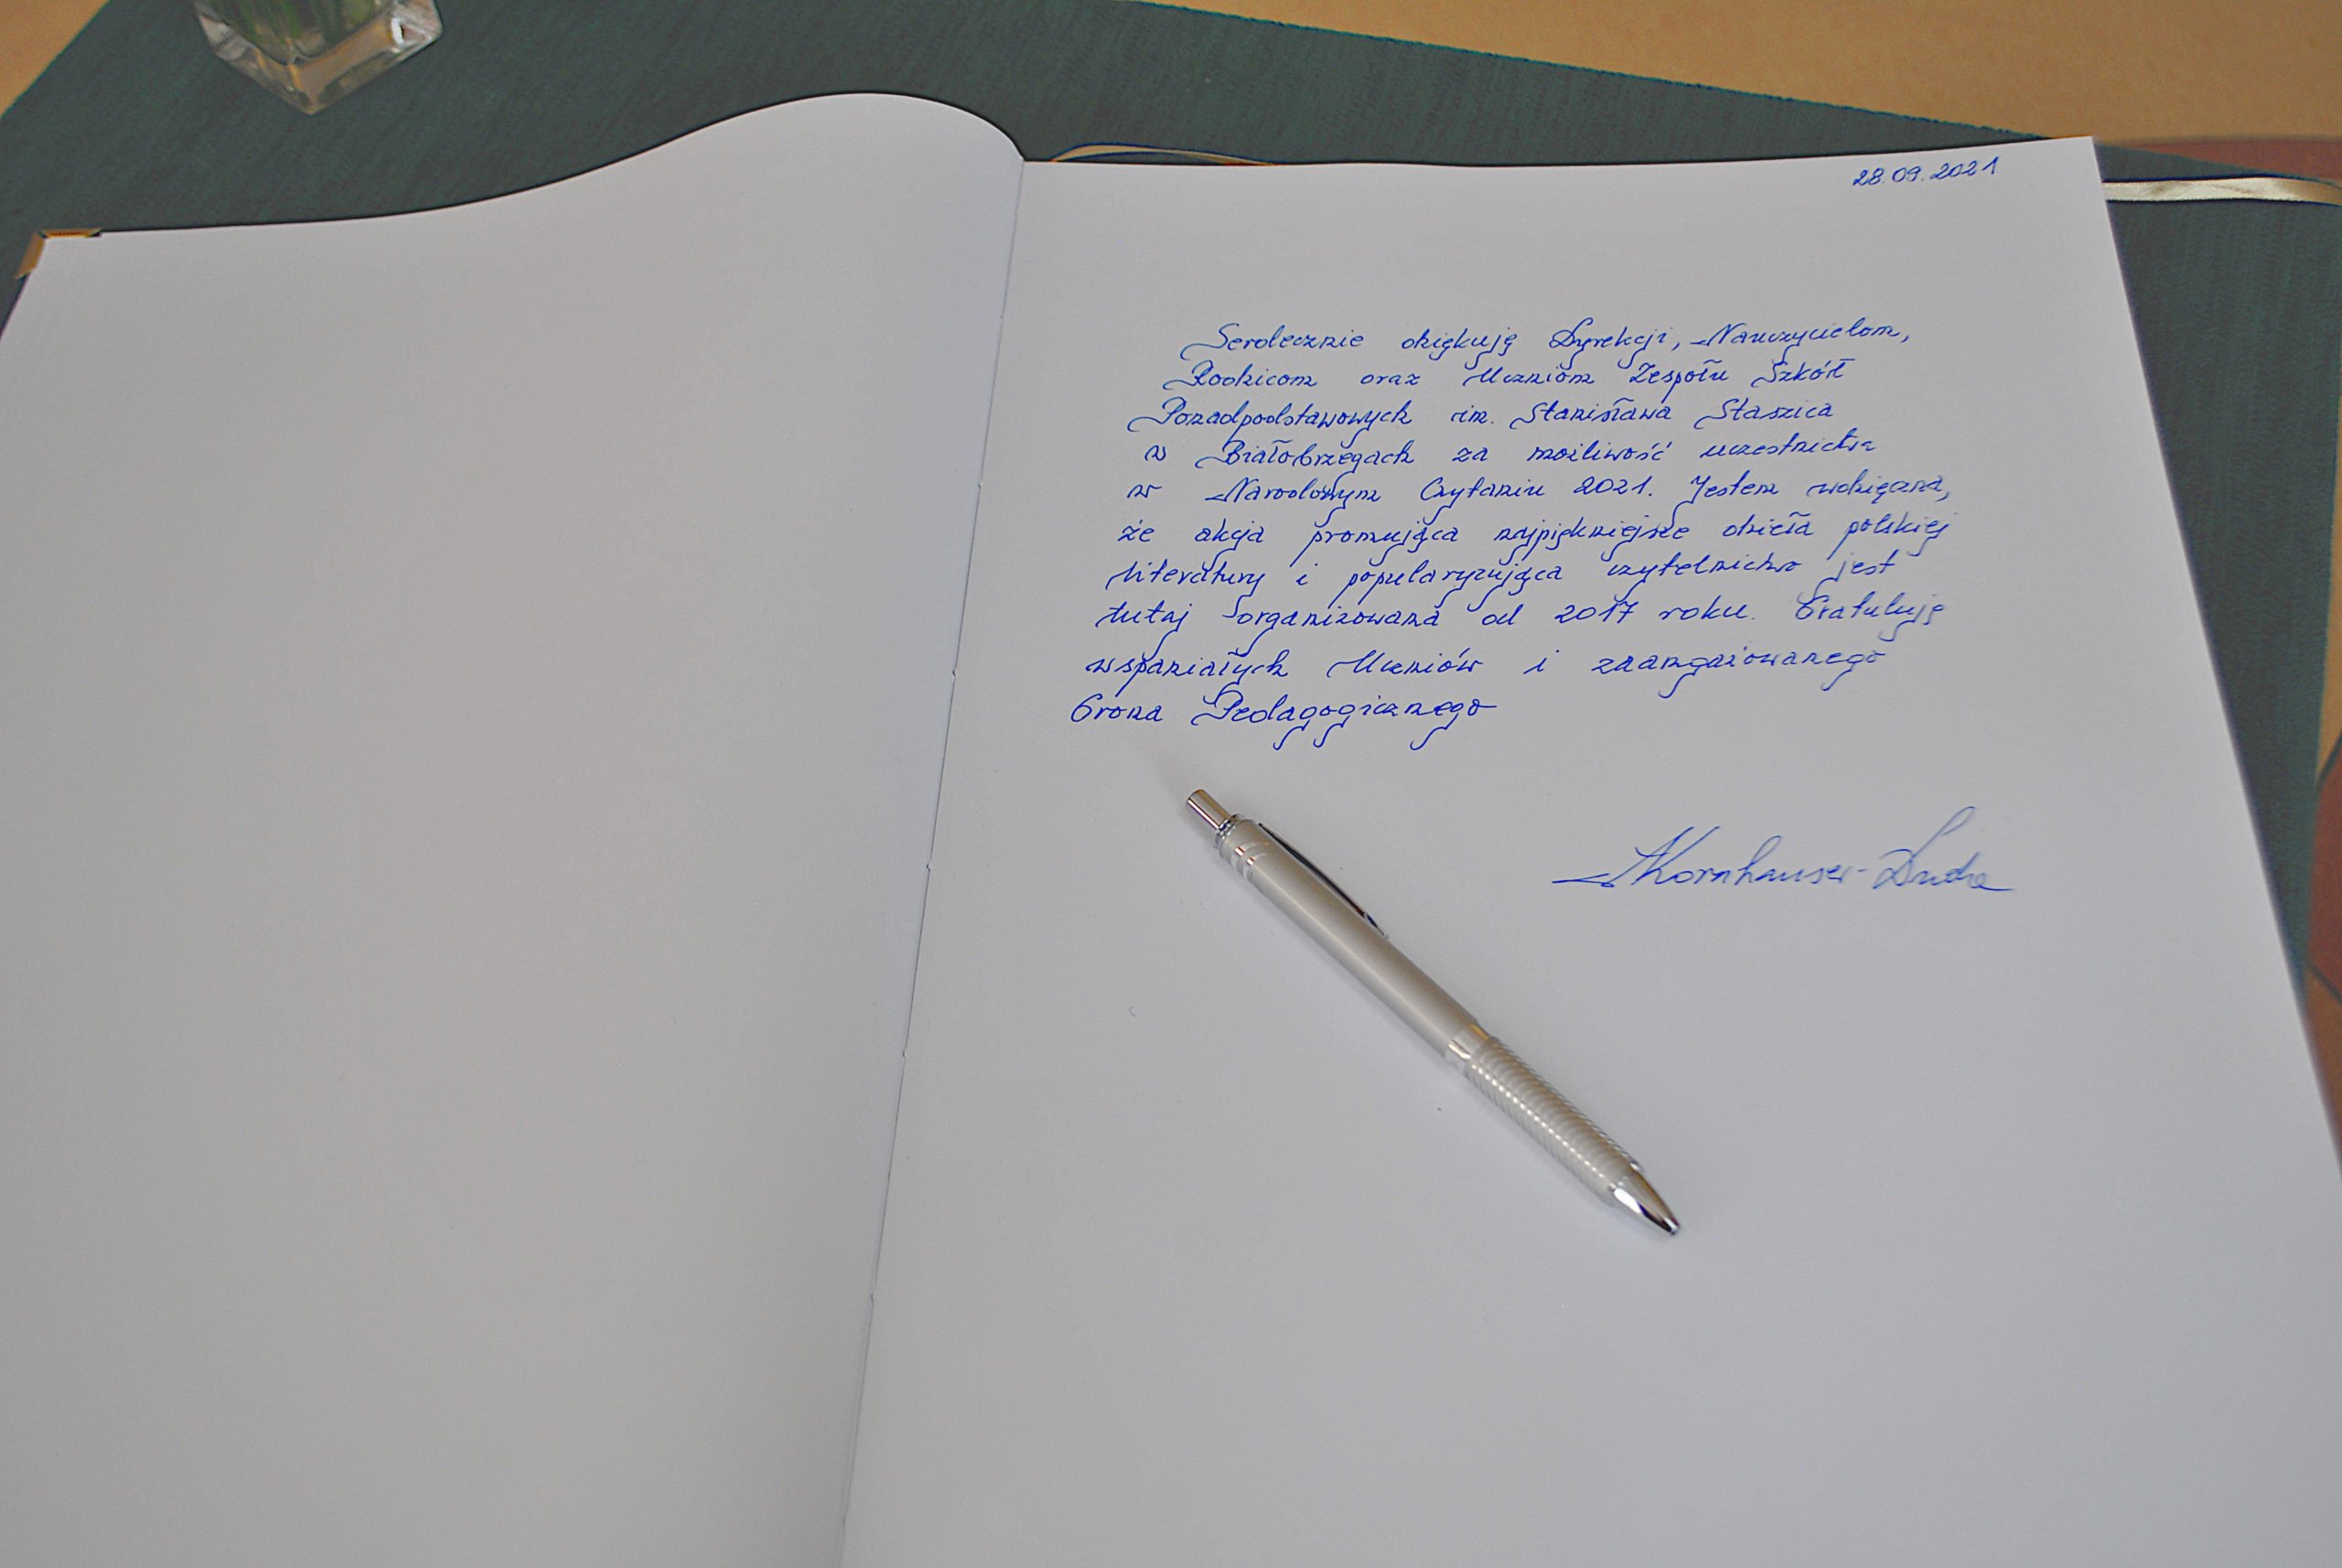 28.09.2021
Serdecznie dziękuję Dyrekcji, Nauczycielom,
Rodzicom oraz Uczniom Zespołu Szkół
Ponadpodstawowych im. Stanisława Staszica
w Białobrzegach za możliwość uczestnictwa
w Narodowym Czytaniu 2021. Jestem wdzięczna,
że akcja promująca najpiękniejsze dzieła polskiej
literatury i popularyzująca czytelnictwo jest
tutaj organizowana od 2017 roku. Gratuluję
wspaniałych Uczniów i zaangażowanego
Grona Pedagogicznego
AKornhauser-Duda